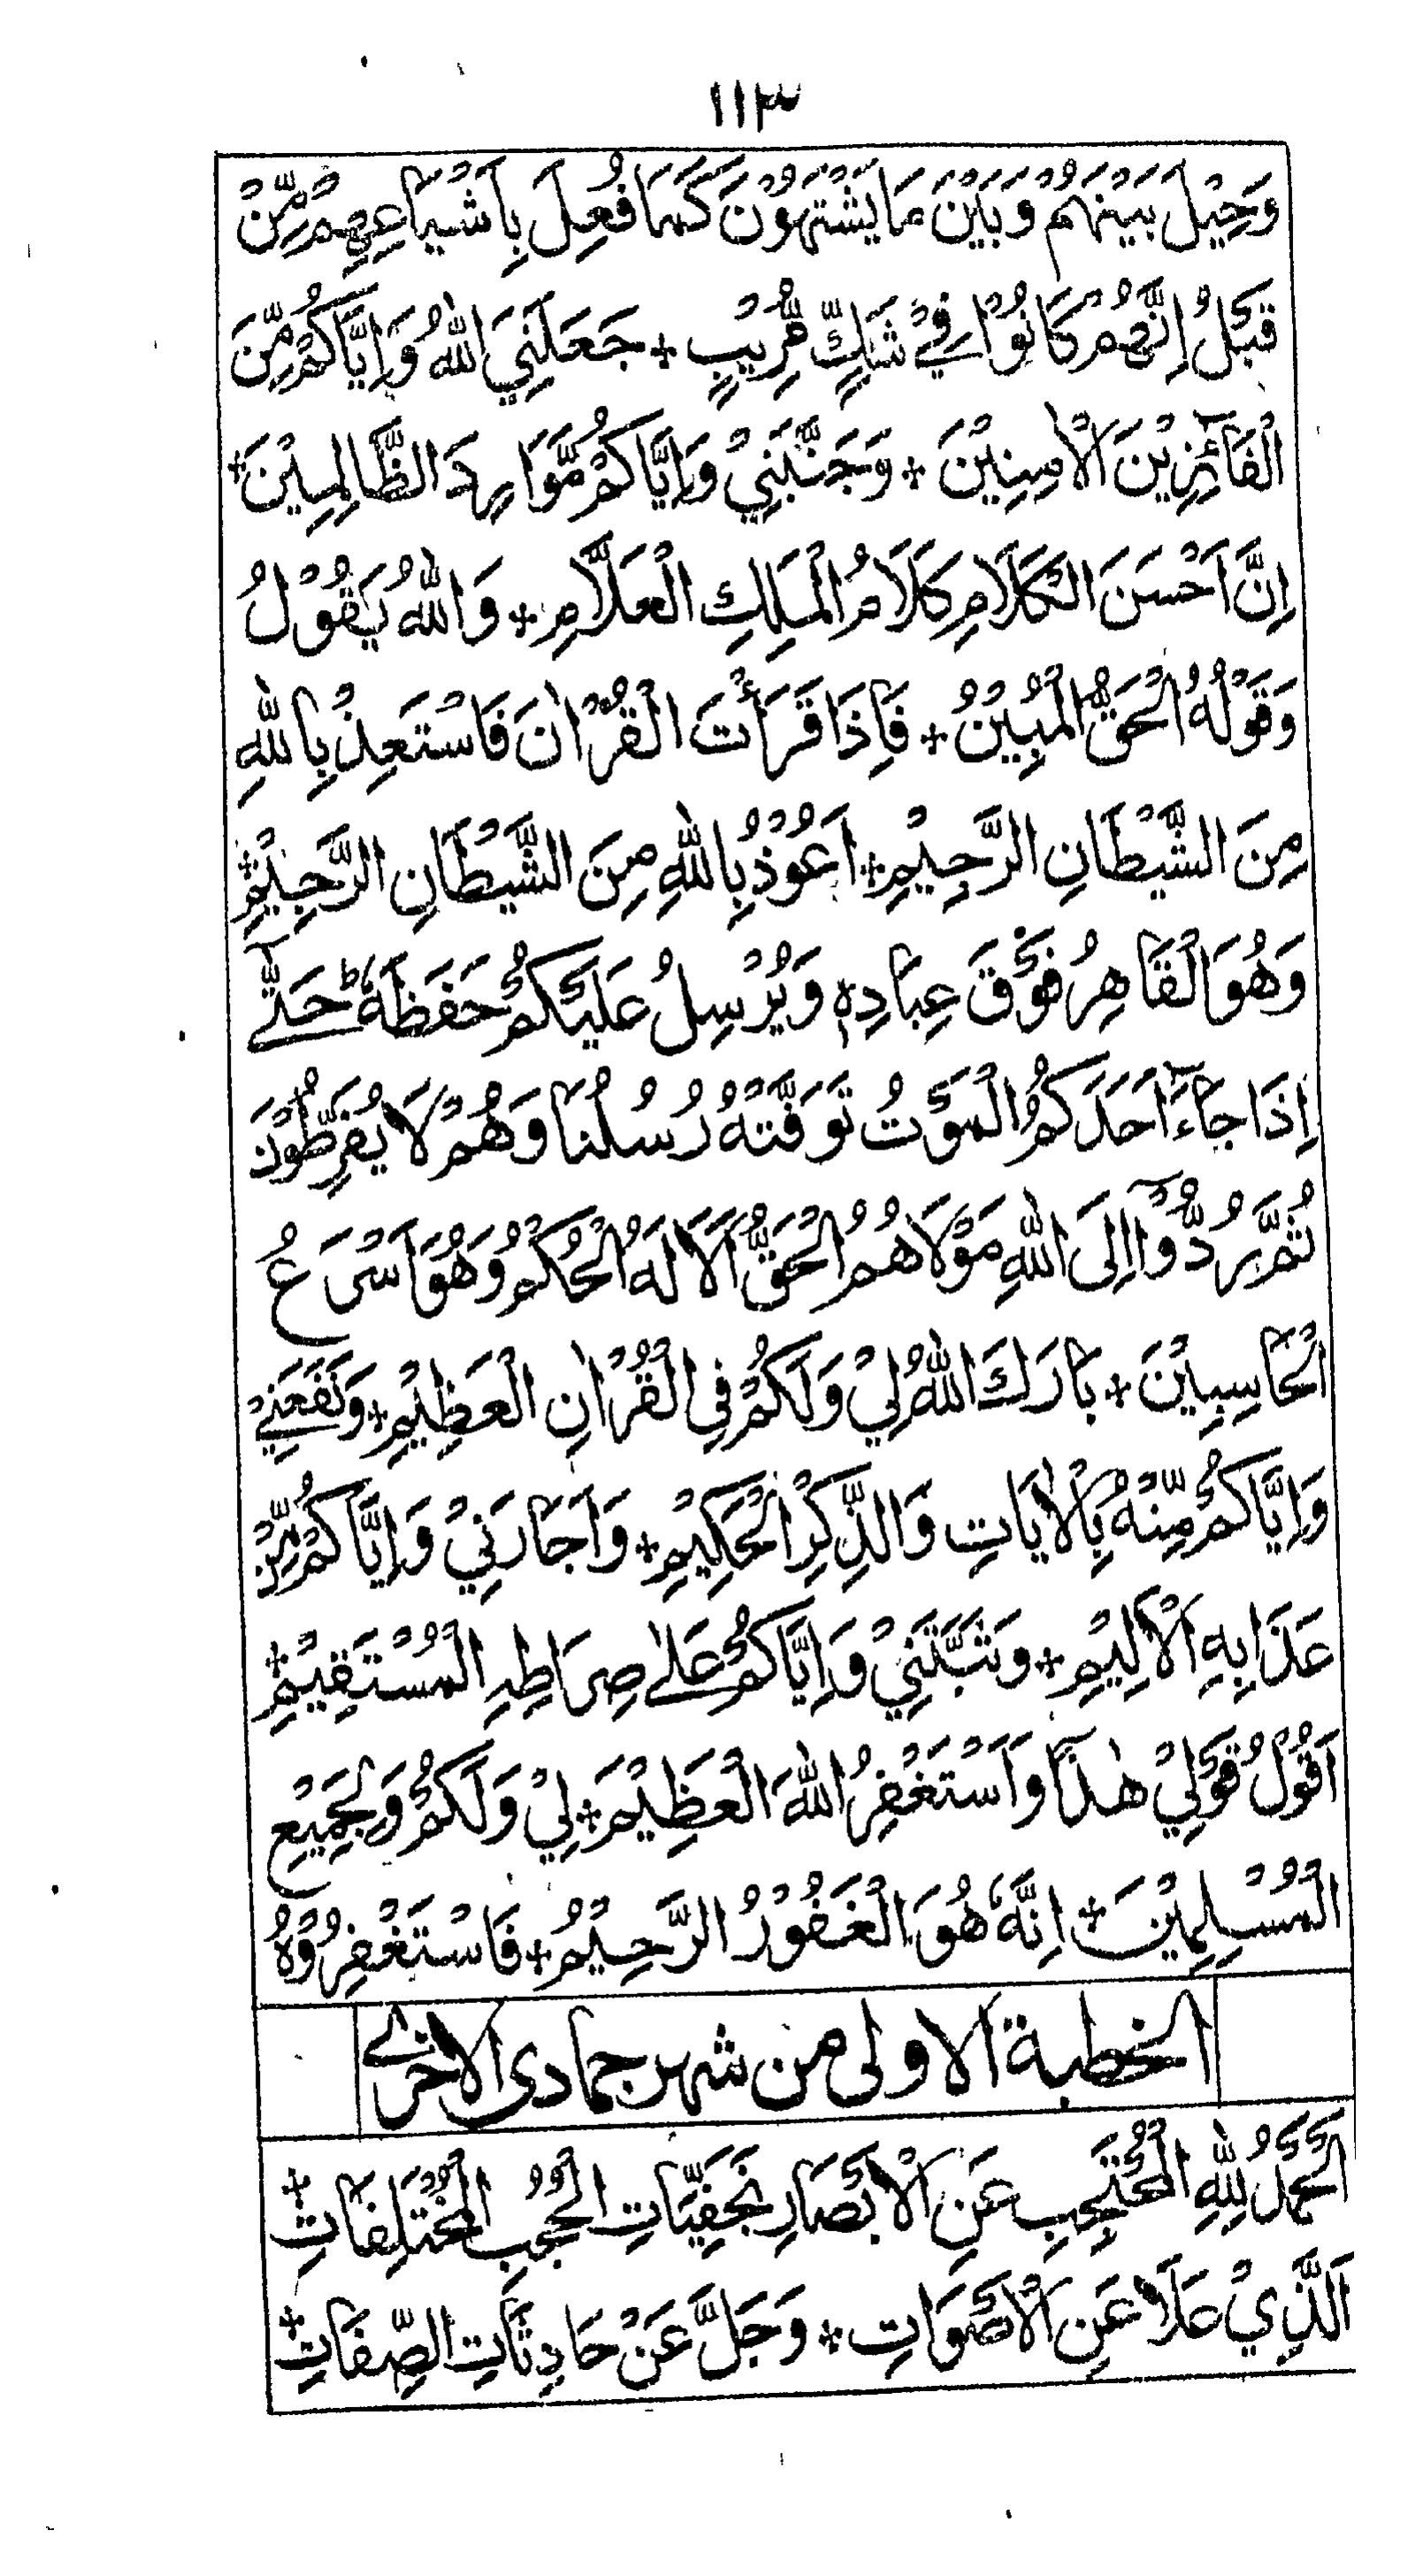 ١١٣
وَحِيْلَ بَيْنَهُمْ وَبَيْنَ مَا يَشْتَهُوْنَ كَمَا فُعِلَ بِاَشْيَاعِهِمْ مِّنْ
قَبْلُ اِنَّهُمْ كَانُوْا فِيْ شَكٍّ مُّرِيْبٍ + جَعَلَنِيَ اللّٰهُ وَاِيَّاكُمْ مِّنَ
الْفَآئِزِيْنَ الْاٰمِنِيْنَ + وَجَنَّبَنِيْ وَاِيَّاكُمْ مَّوَارِدَ الظَّالِمِيْنَ +
اِنَّ اَحْسَنَ الْكَلَامِ كَلَامُ الْمَلِكِ الْعَلَّامِ + وَاللّٰهُ يَقُوْلُ
وَقَوْلُهُ الْحَقُّ الْمُبِيْنُ + فَاِذَا قَرَأْتَ الْقُرْاٰنَ فَاسْتَعِذْ بِاللّٰهِ
مِنَ الشَّيْطَانِ الرَّجِيْمِ + اَعُوْذُ بِاللّٰهِ مِنَ الشَّيْطَانِ الرَّجِيْمِ +
وَهُوَ الْقَاهِرُ فَوْقَ عِبَادِهٖ وَيُرْسِلُ عَلَيْكُمْ حَفَظَةًؕ حَتّٰٓى
اِذَا جَآءَ اَحَدَكُمُ الْمَوْتُ تَوَفَّتْهُ رُسُلُنَا وَهُمْ لَا يُفَرِّطُوْنَ
ثُمَّ رُدُّوْٓا اِلَى اللّٰهِ مَوْلَاهُمُ الْحَقِّ اَلَا لَهُ الْحُكْمُ وَهُوَ اَسْرَعُ
الْحَاسِبِيْنَ + بَارَكَ اللّٰهُ لِيْ وَلَكُمْ فِي الْقُرْاٰنِ الْعَظِيْمِ + وَنَفَعَنِيْ
وَاِيَّاكُمْ مِّنْهُ بِالْاٰيَاتِ وَالذِّكْرِ الْحَكِيْمِ + وَاَجَارَنِيْ وَاِيَّاكُمْ مِّنْ
عَذَابِهِ الْاَلِيْمِ + وَثَبَّتَنِيْ وَاِيَّاكُمْ عَلٰى صِرَاطِهِ الْمُسْتَقِيْمِ +
اَقُوْلُ قَوْلِيْ هٰذَا وَاَسْتَغْفِرُ اللّٰهَ الْعَظِيْمَ + لِيْ وَلَكُمْ وَلِجَمِيْعِ
الْمُسْلِمِيْنَ + اِنَّهٗ هُوَ الْغَفُوْرُ الرَّحِيْمُ + فَاسْتَغْفِرُوْهُ
الخطبة الاولى من شهر جمادى الاخرى
اَلْحَمْدُ لِلّٰهِ الْمُحْتَجِبِ عَنِ الْاَبْصَارِ بِخَفِيَّاتِ الْحُجُبِ الْمُخْتَلِفَاتِ +
اَلَّذِيْ عَلَا عَنِ الْاَصْوَاتِ + وَجَلَّ عَنْ حَادِثَاتِ الصِّفَاتِ +